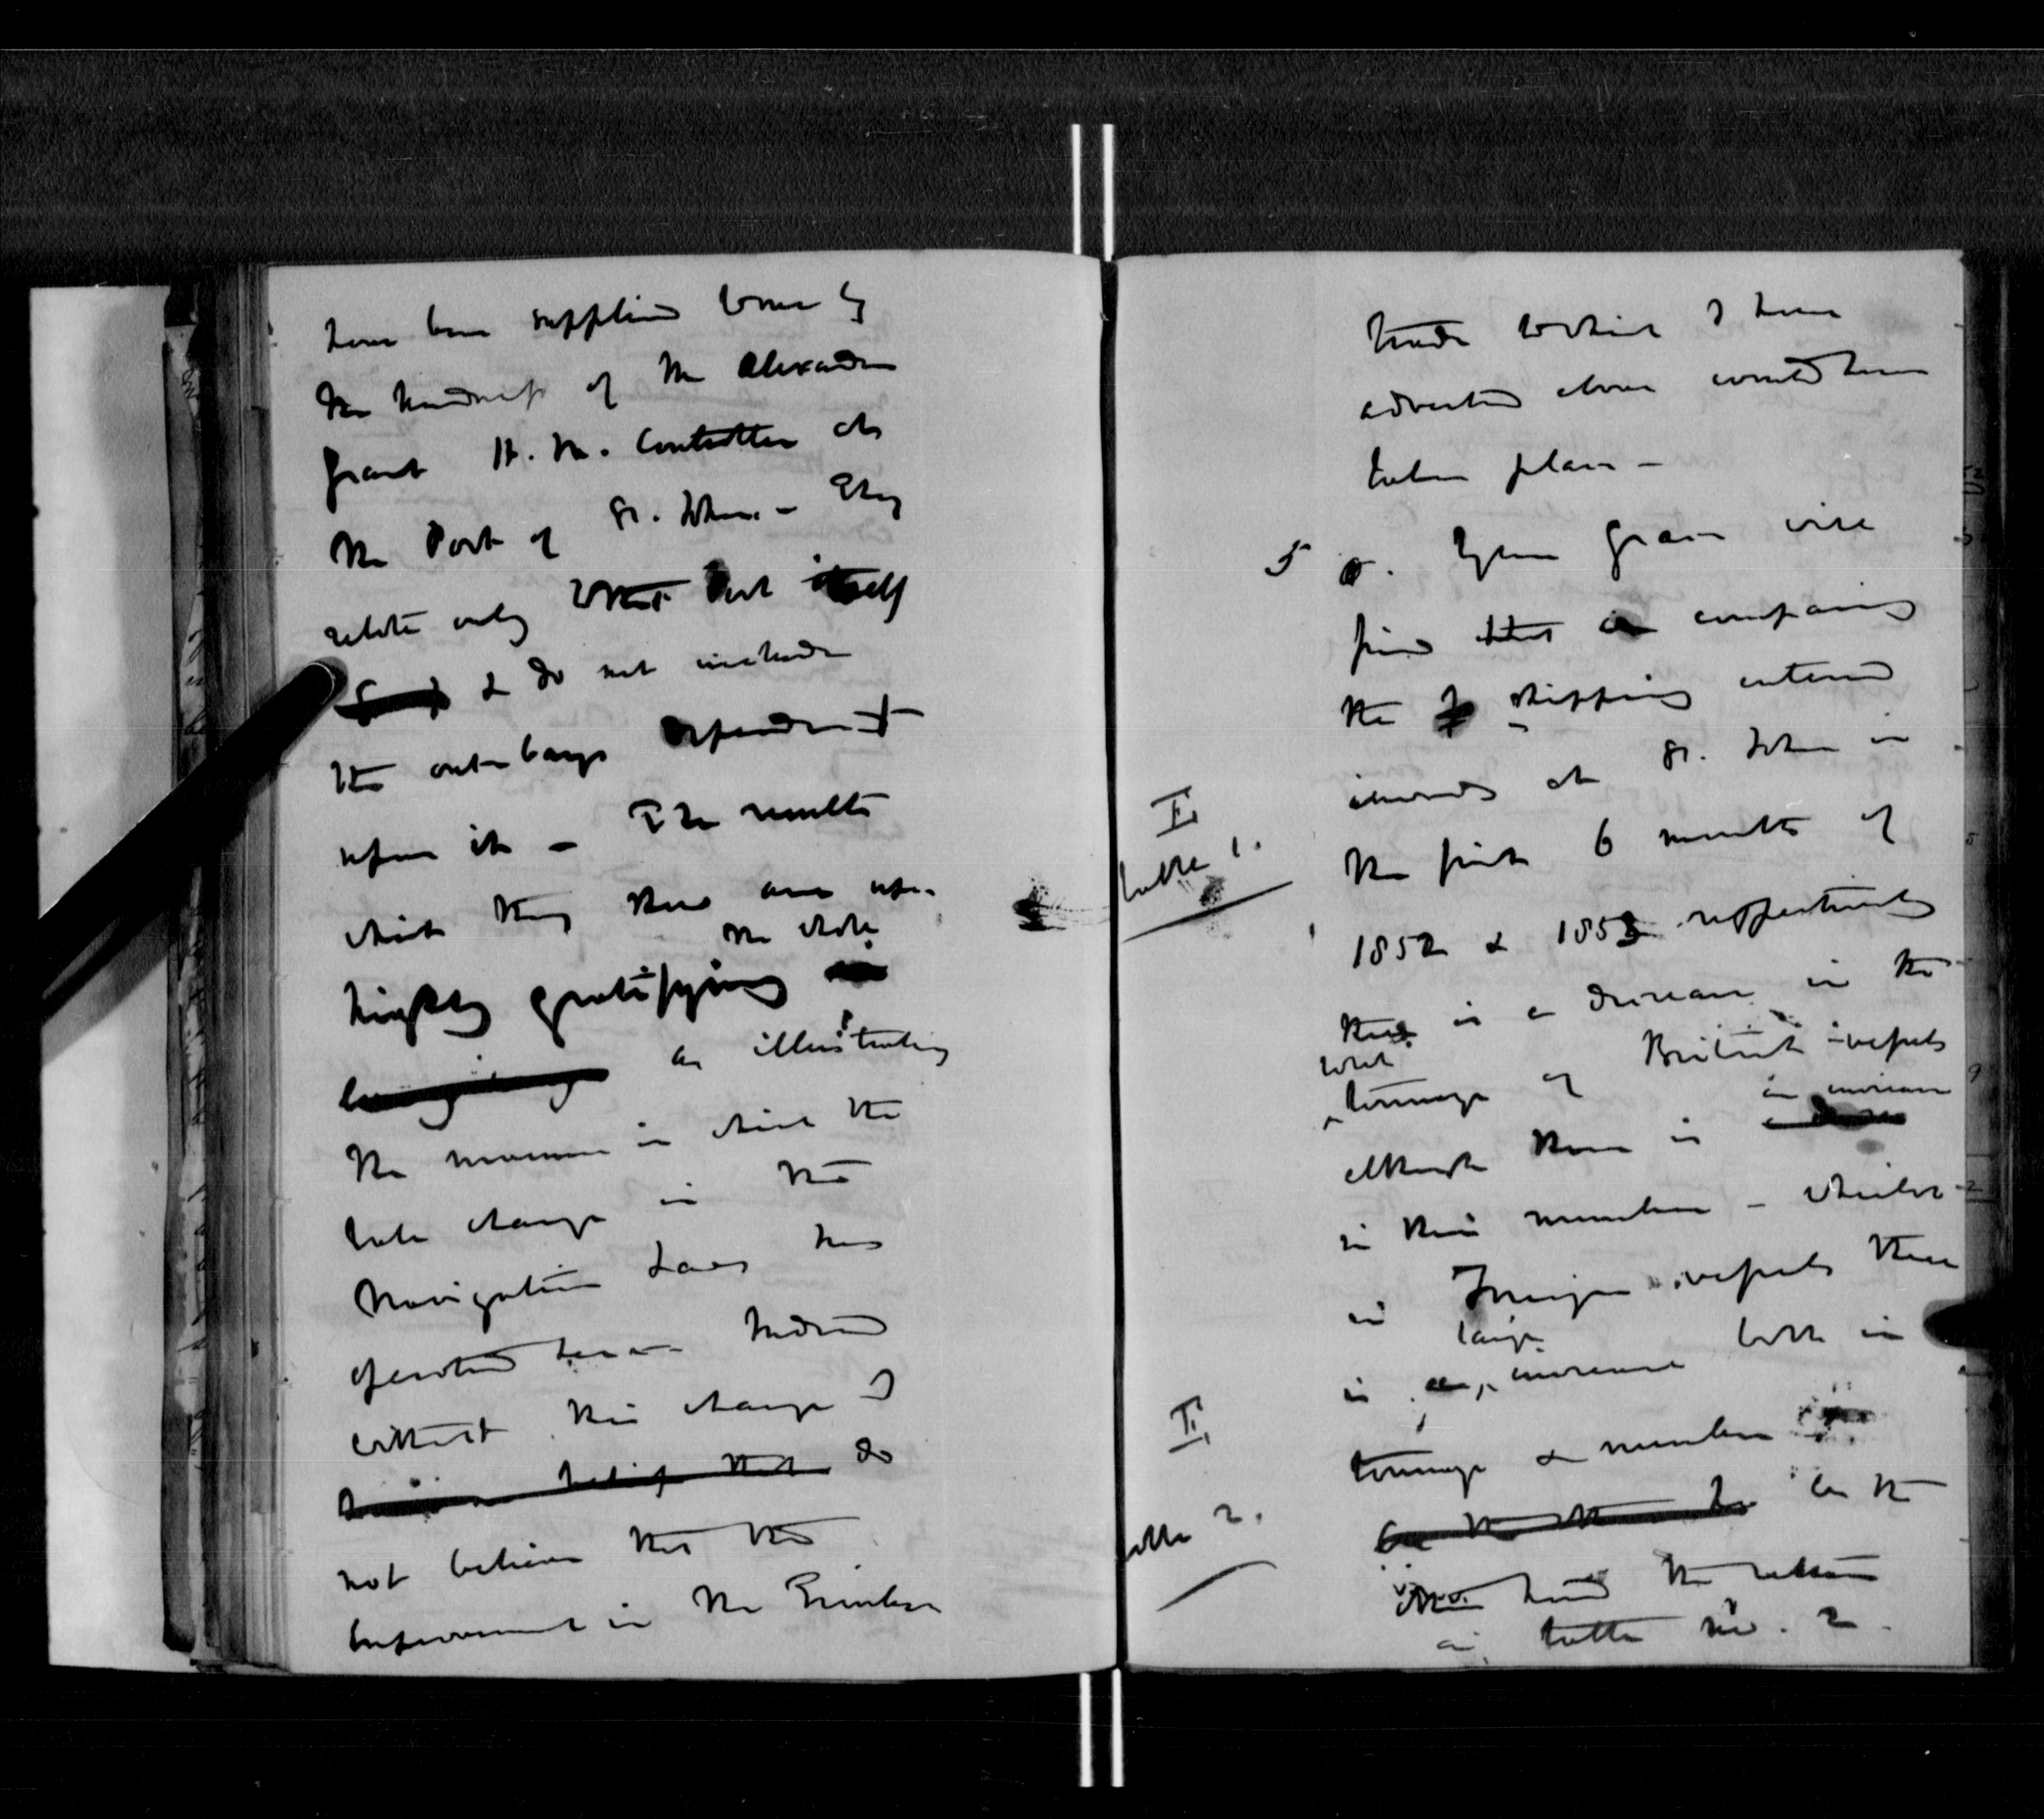 have been supplied to me by
the kindness of Mr Alexander
Grant H. M. Controller at
the Port of St. John. - They
relate only to that Port itself
& do not include
the out-bays dependent
upon it - The results
which they show are upon
the whole
highly gratifying
as illustrating
the manner in which the
late change in the
Navigation Laws has
operated here - Indeed
without this change I
do
not believe that the
improvement in the Timber
trade to which I have
adverted above would have
taken place -
5 . Your Grace will
find that in comparing
the shipping entered
inwards at St. John in
I
table 1.
the first 6 months of
1852 & 1853 respectively
there is a decrease in the
total
tonnage of British vessels
an increase
although there is
in their number - whilst
in Foreign vessels there
large
is an increase both in
II
tonnage & number
table 2.
on the
other hand the return
in table No. 2